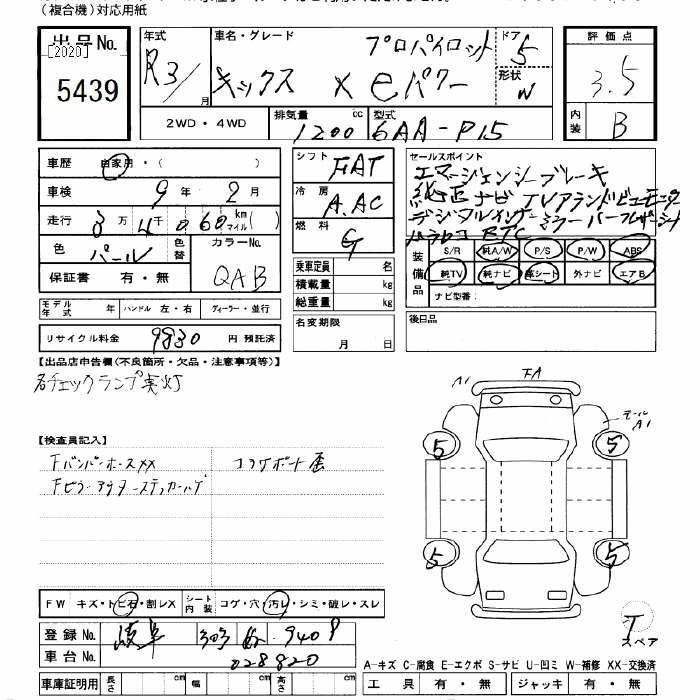 (複合機)対応用紙
出品No.
[2020]
5439
年式
R3/
月
車名・グレード
プロパイロット
キックス X eパワー
ドア
5
形状
W
評価点
3.5
内装
B
2WD・4WD
排気量
cc
1200
型式
6AA-P15
車歴
自家用・( )
車検
9年 2月
走行
3万4千060 km マイル( )
色
パール
色替
カラーNo.
QAB
保証書 有・無
シフト
FAT
冷房
A.AC
燃料
G
乗車定員 名
積載量 kg
総重量 kg
名変期限
月 日
セールスポイント
エマージェンシーブレーキ
純正ナビ TVアラウンドビューモニター
デジタルインナーミラー
ETC
装備品
S/R 純A/W P/S P/W ABS
純TV 純ナビ 革シート 外ナビ エアB
ナビ型番:
後日品
モデル年式 年 ハンドル 左・右 ディーラー・並行
リサイクル料金 9830 円 預託済
【出品店申告欄(不良箇所・欠品・注意事項等)】
チェックランプ点灯
【検査員記入】
FバンパーホースXX
コゲボード歪
FA
A1
モール
A1
5
5
5
5
T
スペア
FW キズ・トビ石・割レX シート内装 コゲ・穴・汚レ・シミ・破レ・スレ
登録No. 岐阜 303 940
車台No. 028820
車庫証明用 長さ cm 幅 cm 高さ cm
A-キズ C-腐食 E-エクボ S-サビ U-凹ミ W-補修 XX-交換済
工具 有・無 ジャッキ 有・無